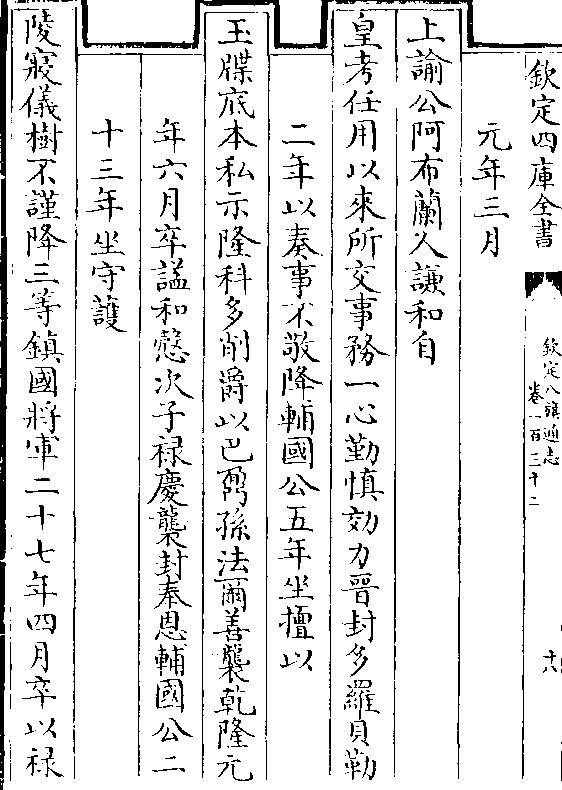 欽定四庫全書
欽定八旗通志
卷一百三十二
六
元年三月
上諭公阿布蘭人謙和自
皇考任用以來所交事務一心勤慎効力晉封多羅貝勒
二年以奏事不敬降輔國公五年坐擅以
玉牒底本私示隆科多削爵以巴鼐孫法爾善襲乾隆元
年六月卒諡和慤次子祿慶襲封奉恩輔國公二
十三年坐守護
陵寢儀樹不謹降三等鎮國將軍二十七年四月卒以祿